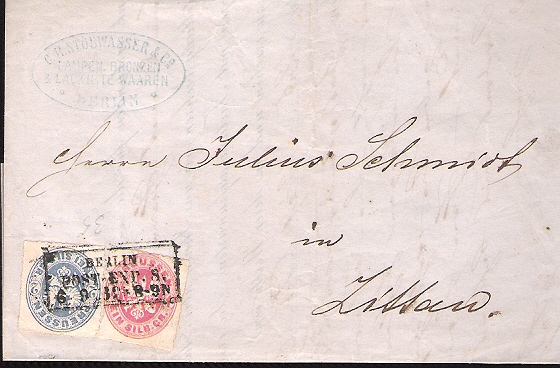 C. H. STOBWASSER & Co
LAMPEN, BRONZEN
& LACKIRTE WAAREN
BERLIN
Herrn Julius Schmidt
in
Zittau.
BERLIN
POST-EXP. 8.
8-9N
PREUSSEN
EIN SILB. GR.